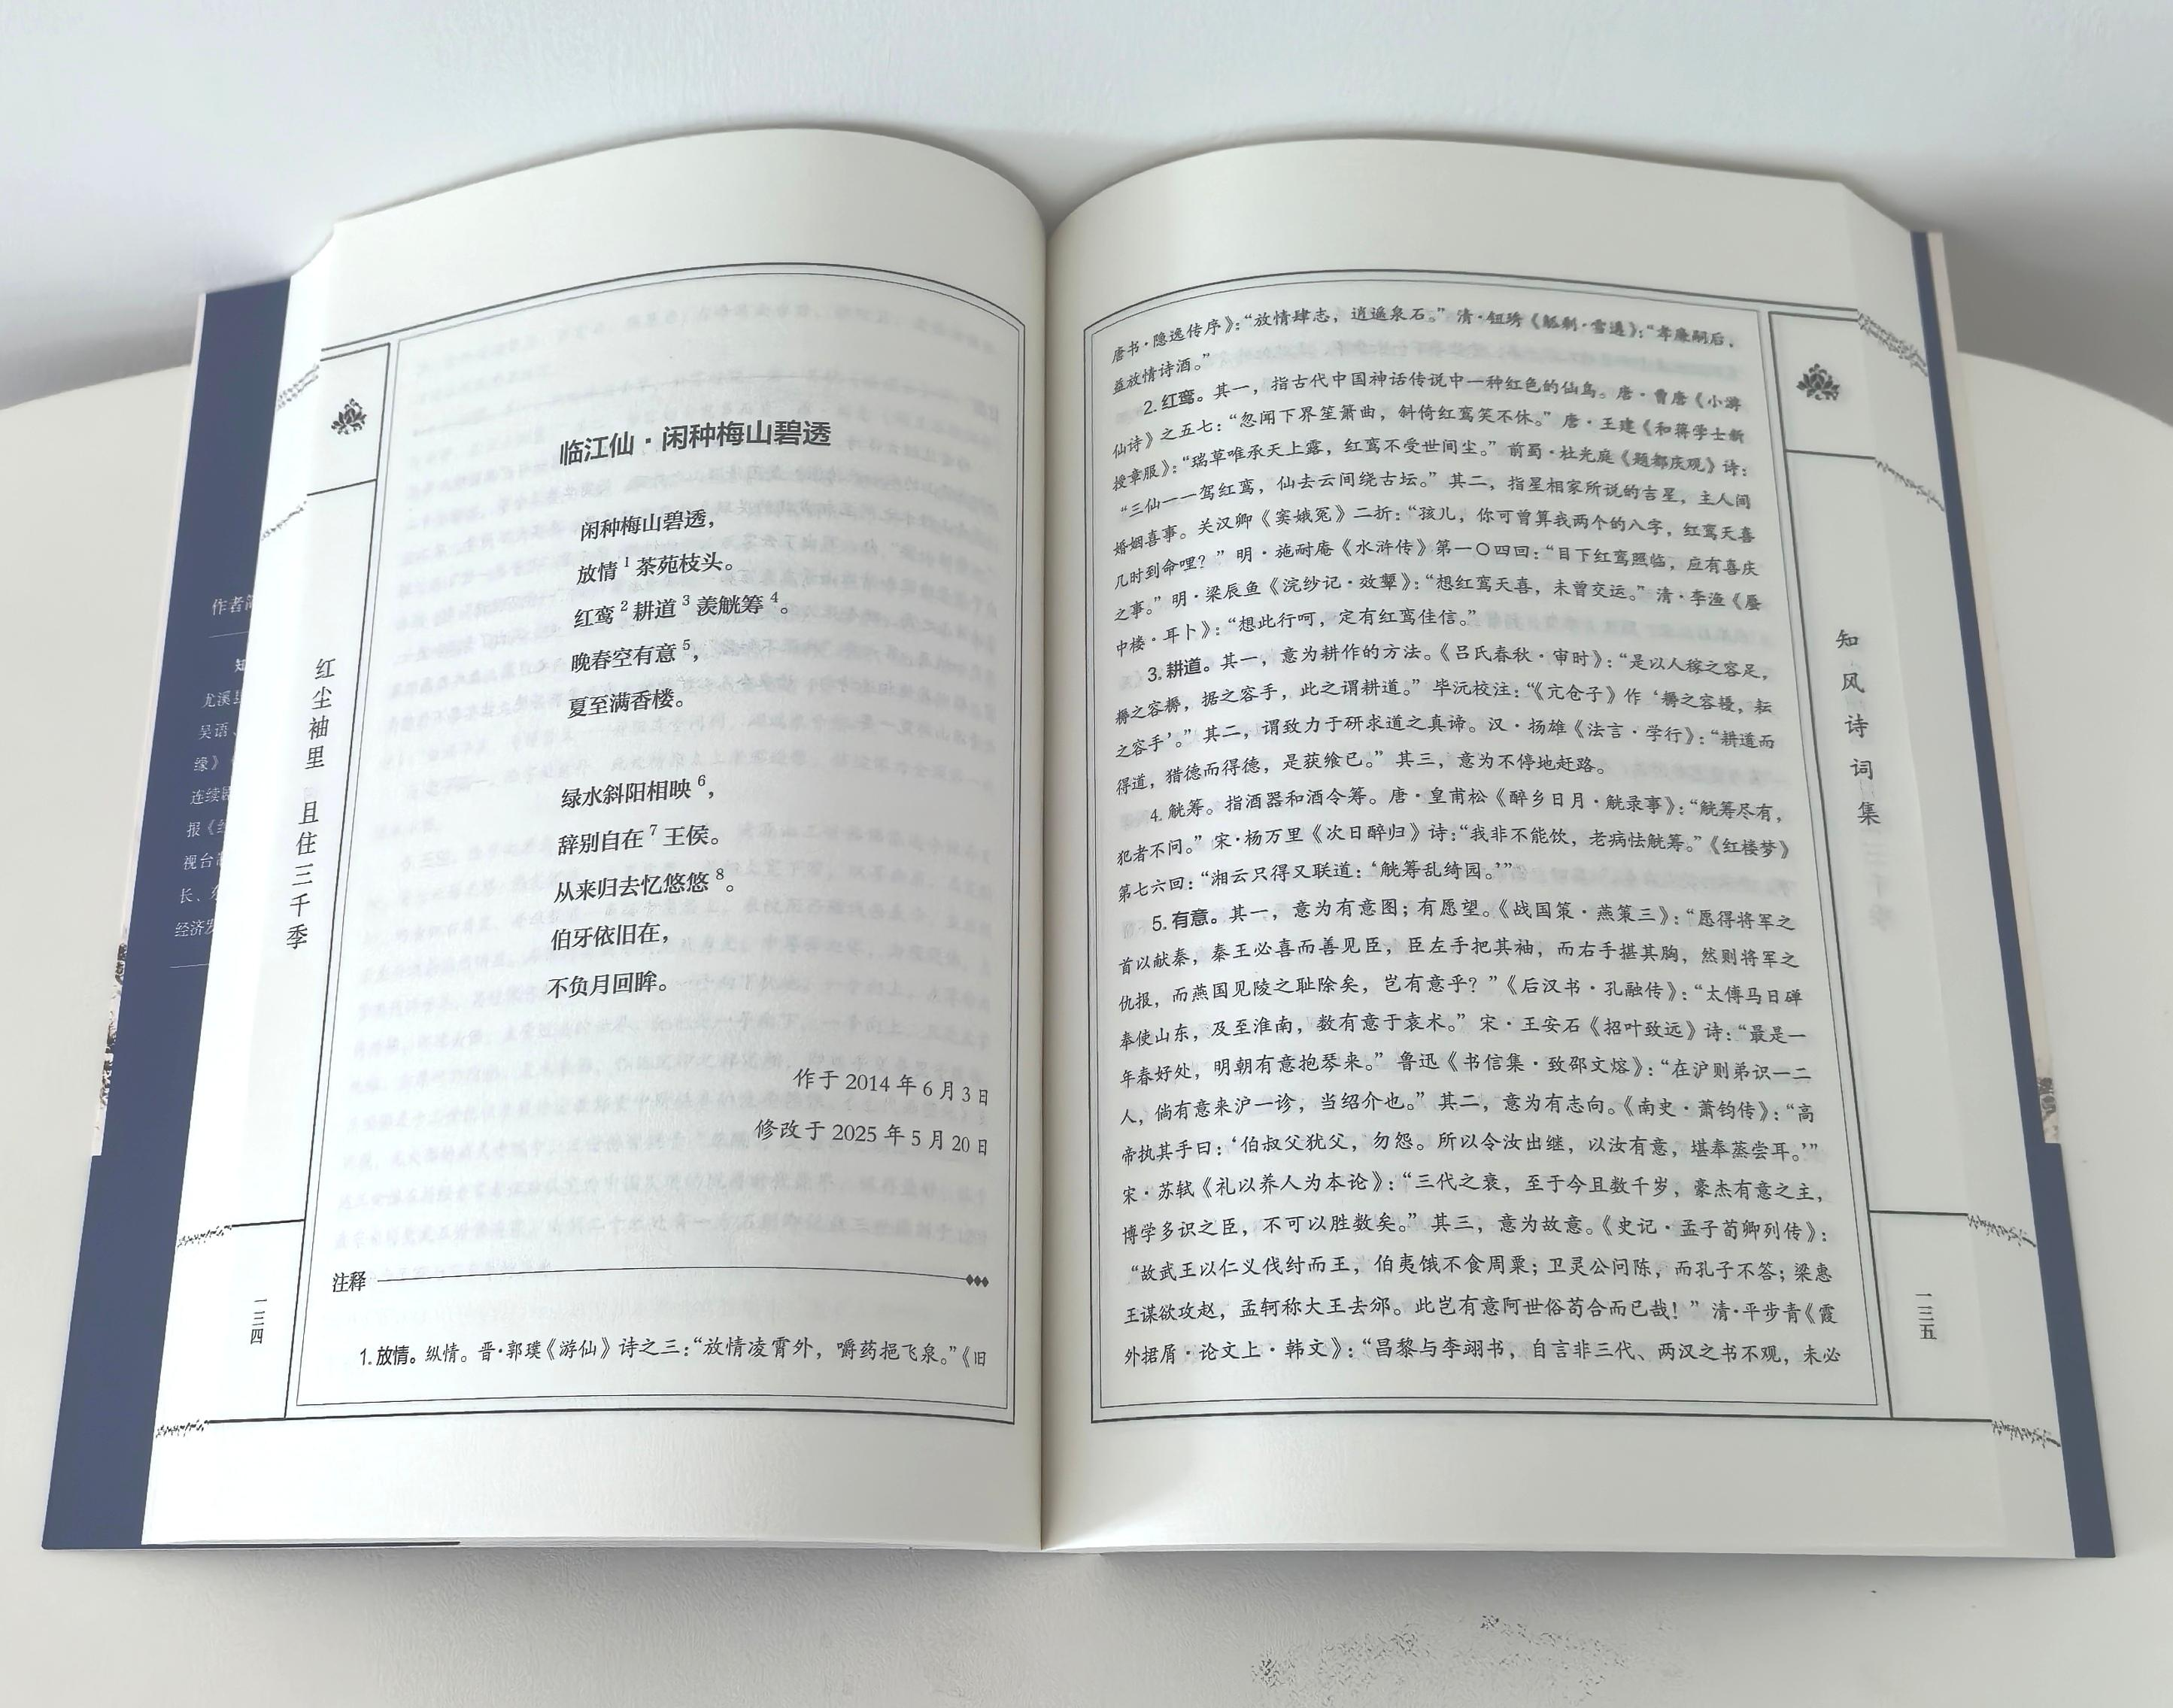 作者简
知
尤溪县
吴语、
缘》
连续剧
报《经
视台
长、
经济发
红尘袖里 且住三千季
一三四
临江仙·闲种梅山碧透
闲种梅山碧透，
放情1茶苑枝头。
红鸾2耕道3羡觥筹4。
晚春空有意5，
夏至满香楼。
绿水斜阳相映6，
辞别自在7王侯。
从来归去忆悠悠8。
伯牙依旧在，
不负月回眸。
作于 2014 年 6 月 3 日
修改于 2025 年 5 月 20 日
注释
1. 放情。纵情。晋·郭璞《游仙》诗之三：“放情凌霄外，嚼药挹飞泉。”《旧
唐书·隐逸传序》：“放情肆志，逍遥泉石。”清·钮琇《觚剩·雪遘》：“孝廉嗣后，
益放情诗酒。”
2. 红鸾。其一，指古代中国神话传说中一种红色的仙鸟。唐·曹唐《小游
仙诗》之五七：“忽闻下界笙箫曲，斜倚红鸾笑不休。”唐·王建《和蒋学士新
授章服》：“瑞草唯承天上露，红鸾不受世间尘。”前蜀·杜光庭《题都庆观》诗：
“三仙一一驾红鸾，仙去云间绕古坛。”其二，指星相家所说的吉星，主人间
婚姻喜事。关汉卿《窦娥冤》二折：“孩儿，你可曾算我两个的八字，红鸾天喜
几时到命哩？”明·施耐庵《水浒传》第一〇四回：“目下红鸾照临，应有喜庆
之事。”明·梁辰鱼《浣纱记·效颦》：“想红鸾天喜，未曾交运。”清·李渔《蜃
中楼·耳卜》：“想此行呵，定有红鸾佳信。”
3. 耕道。其一，意为耕作的方法。《吕氏春秋·审时》：“是以人稼之容足，
耨之容耨，据之容手，此之谓耕道。”毕沅校注：“《亢仓子》作‘耨之容耰，耘
之容手’。”其二，谓致力于研求道之真谛。汉·扬雄《法言·学行》：“耕道而
得道，猎德而得德，是获飨已。”其三，意为不停地赶路。
4. 觥筹。指酒器和酒令筹。唐·皇甫松《醉乡日月·觥录事》：“觥筹尽有，
犯者不问。”宋·杨万里《次日醉归》诗：“我非不能饮，老病怯觥筹。”《红楼梦》
第七六回：“湘云只得又联道：‘觥筹乱绮园。’”
5. 有意。其一，意为有意图；有愿望。《战国策·燕策三》：“愿得将军之
首以献秦，秦王必喜而善见臣，臣左手把其袖，而右手揕其胸，然则将军之
仇报，而燕国见陵之耻除矣，岂有意乎？”《后汉书·孔融传》：“太傅马日磾
奉使山东，及至淮南，数有意于袁术。”宋·王安石《招叶致远》诗：“最是一
年春好处，明朝有意抱琴来。”鲁迅《书信集·致邵文熔》：“在沪则弟识一二
人，倘有意来沪一诊，当绍介也。”其二，意为有志向。《南史·萧钧传》：“高
帝执其手曰：‘伯叔父犹父，勿怨。所以令汝出继，以汝有意，堪奉蒸尝耳。’”
宋·苏轼《礼以养人为本论》：“三代之衰，至于今且数千岁，豪杰有意之主，
博学多识之臣，不可以胜数矣。”其三，意为故意。《史记·孟子荀卿列传》：
“故武王以仁义伐纣而王，伯夷饿不食周粟；卫灵公问陈，而孔子不答；梁惠
王谋欲攻赵，孟轲称大王去邠。此岂有意阿世俗苟合而已哉！”清·平步青《霞
外捃屑·论文上·韩文》：“昌黎与李翊书，自言非三代、两汉之书不观，未必
知风诗词集
一三五